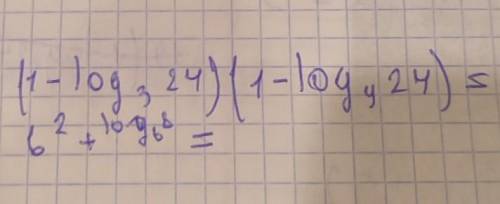 (1-log₃ 24)(1-log₄ 24)=
6^2+log₆8 =